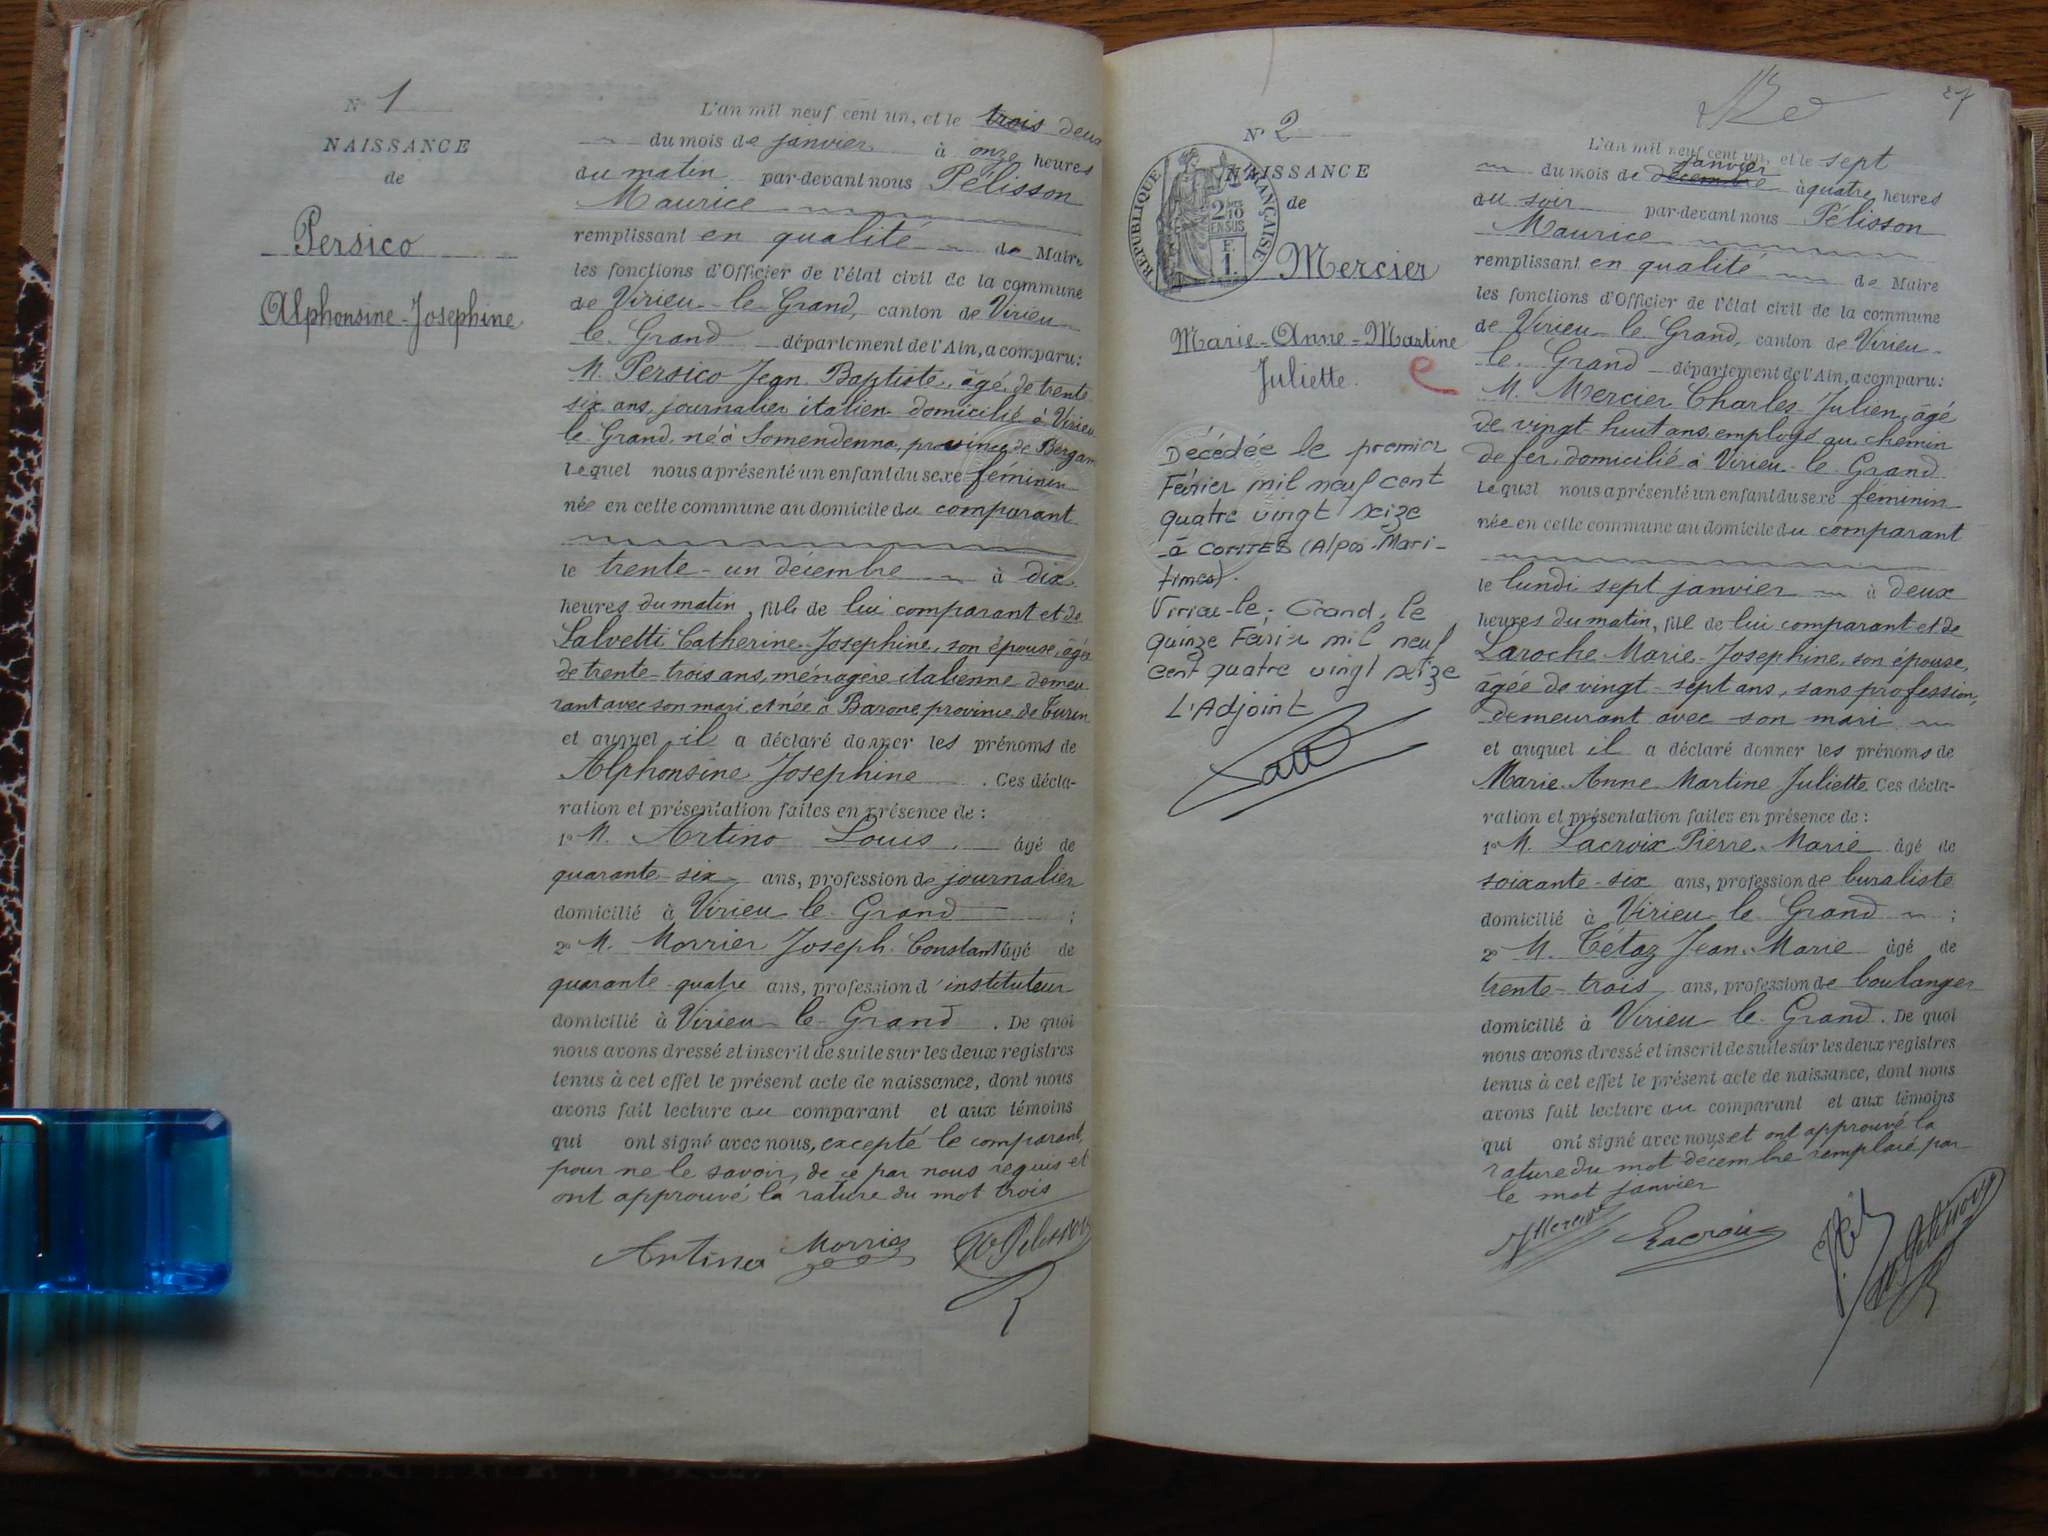 N° 1
NAISSANCE
de
Persico
Alphonsine-Josephine
L'an mil neuf cent un, et le trois deux
du mois de janvier à onze heures
du matin par-devant nous Pélisson
Maurice
remplissant en qualité de Maire
les fonctions d'Officier de l'état civil de la commune
de Virieu-le-Grand, canton de Virieu
le Grand département de l'Ain, a comparu:
M. Persico Jean Baptiste, âgé de trente
six ans, journalier italien domicilié à Virieu
le Grand, né à Somendenna, province de Bergam
Lequel nous a présenté un enfant du sexe féminin
née en cette commune au domicile du comparant
le trente-un décembre à dix
heures du matin, fille de lui comparant et de
Salvetti Catherine-Josephine, son épouse, âgée
de trente-trois ans, ménagère italienne demeu
rant avec son mari et née à Barone province de Turin
et auquel il a déclaré donner les prénoms de
Alphonsine Josephine. Ces décla-
ration et présentation faites en présence de :
1° M. Artino Louis âgé de
quarante-six ans, profession de journalier
domicilié à Virieu le Grand ;
2° M. Morrier Joseph Constant âgé de
quarante-quatre ans, profession d'instituteur
domicilié à Virieu-le-Grand. De quoi
nous avons dressé et inscrit de suite sur les deux registres
tenus à cet effet le présent acte de naissance, dont nous
avons fait lecture au comparant et aux témoins
qui ont signé avec nous, excepté le comparant,
pour ne le savoir, de ce par nous requis et
ont approuvé la rature du mot trois
Artino Morrier Pelisson
27
N° 2
NAISSANCE
de
RÉPUBLIQUE FRANÇAISE
2/10 EN SUS
F. 1.
Mercier
Marie-Anne-Martine
Juliette.
Décédée le premier
Février mil neuf cent
quatre vingt seize
à CONTES (Alpes-Mari-
times).
Virieu-le-Grand, le
quinze Février mil neuf
cent quatre vingt seize
L'Adjoint
L'an mil neuf cent un, et le sept
janvier
du mois de décembre à quatre heures
du soir par-devant nous Pélisson
Maurice
remplissant en qualité de Maire
les fonctions d'Officier de l'état civil de la commune
de Virieu-le-Grand, canton de Virieu-
le Grand département de l'Ain, a comparu:
M. Mercier Charles-Julien, âgé
de vingt-huit ans, employé au chemin
de fer, domicilié à Virieu-le-Grand
Lequel nous a présenté un enfant du sexe féminin
née en cette commune au domicile du comparant
le lundi sept janvier à deux
heures du matin, fille de lui comparant et de
Laroche Marie-Josephine, son épouse,
âgée de vingt-sept ans, sans profession,
demeurant avec son mari
et auquel il a déclaré donner les prénoms de
Marie Anne Martine Juliette. Ces décla-
ration et présentation faites en présence de :
1° M. Lacroix Pierre-Marie âgé de
soixante-six ans, profession de buraliste
domicilié à Virieu-le-Grand ;
2° M. Tétaz Jean-Marie âgé de
trente-trois ans, profession de boulanger
domicilié à Virieu-le-Grand. De quoi
nous avons dressé et inscrit de suite sur les deux registres
tenus à cet effet le présent acte de naissance, dont nous
avons fait lecture au comparant et aux témoins
qui ont signé avec nous et ont approuvé la
rature du mot décembre remplacé par
le mot janvier
Mercier Lacroix Pelisson